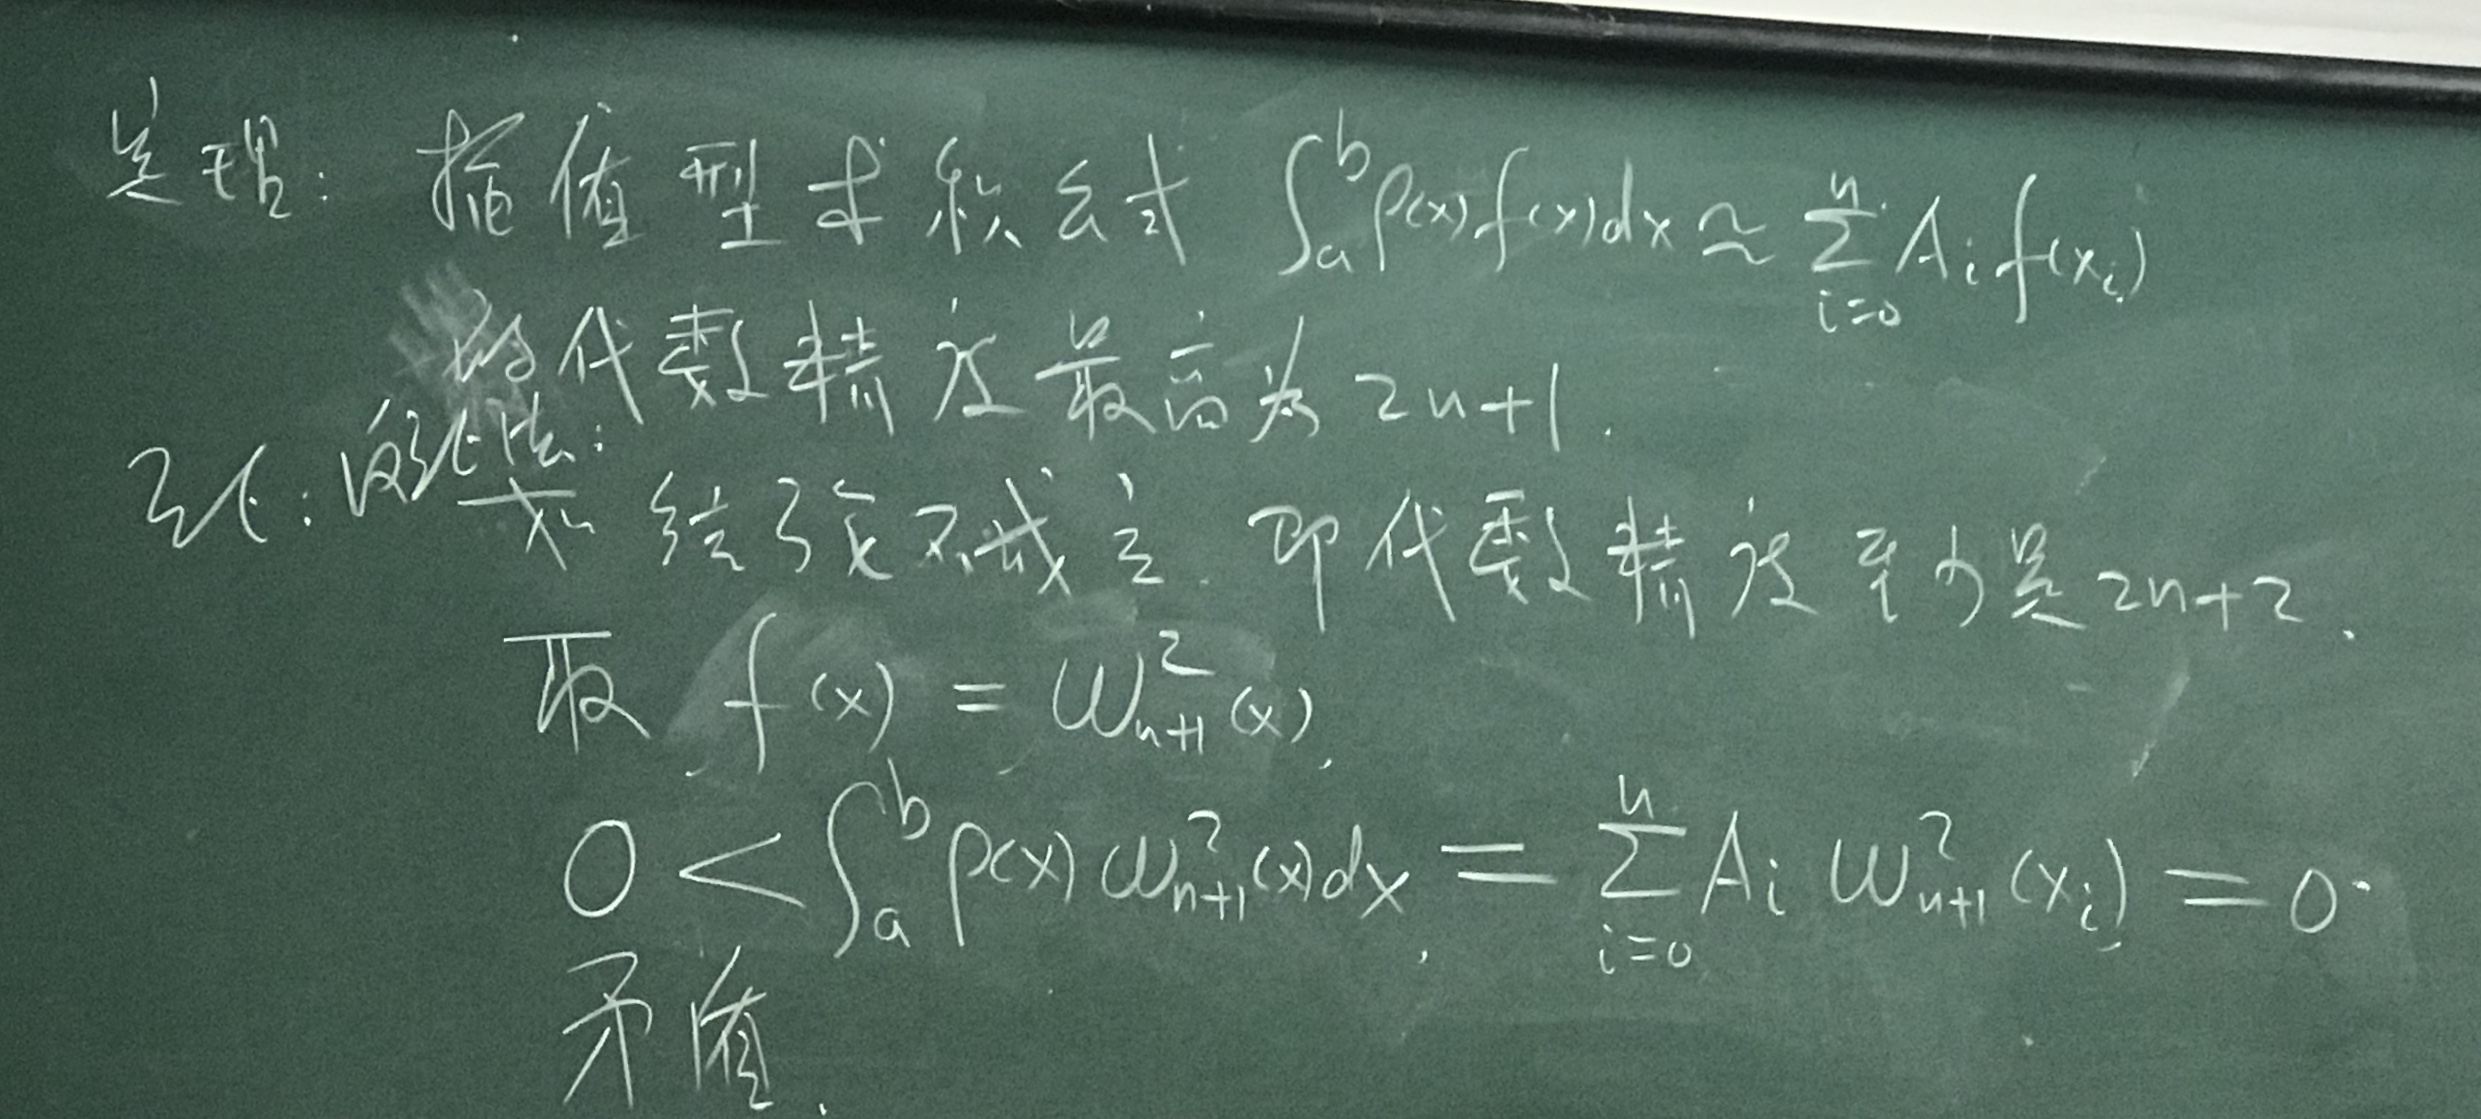 定理: 插值型求积公式 ∫_a^b ρ(x)f(x)dx ≈ ∑_{i=0}^n A_i f(x_i)
的代数精度最高为 2n+1.
证: 反证法:
如结论不成立. 即代数精度至少是 2n+2.
取 f(x) = ω_{n+1}^2(x),
0 < ∫_a^b ρ(x) ω_{n+1}^2(x)dx = ∑_{i=0}^n A_i ω_{n+1}^2(x_i) = 0.
矛盾.